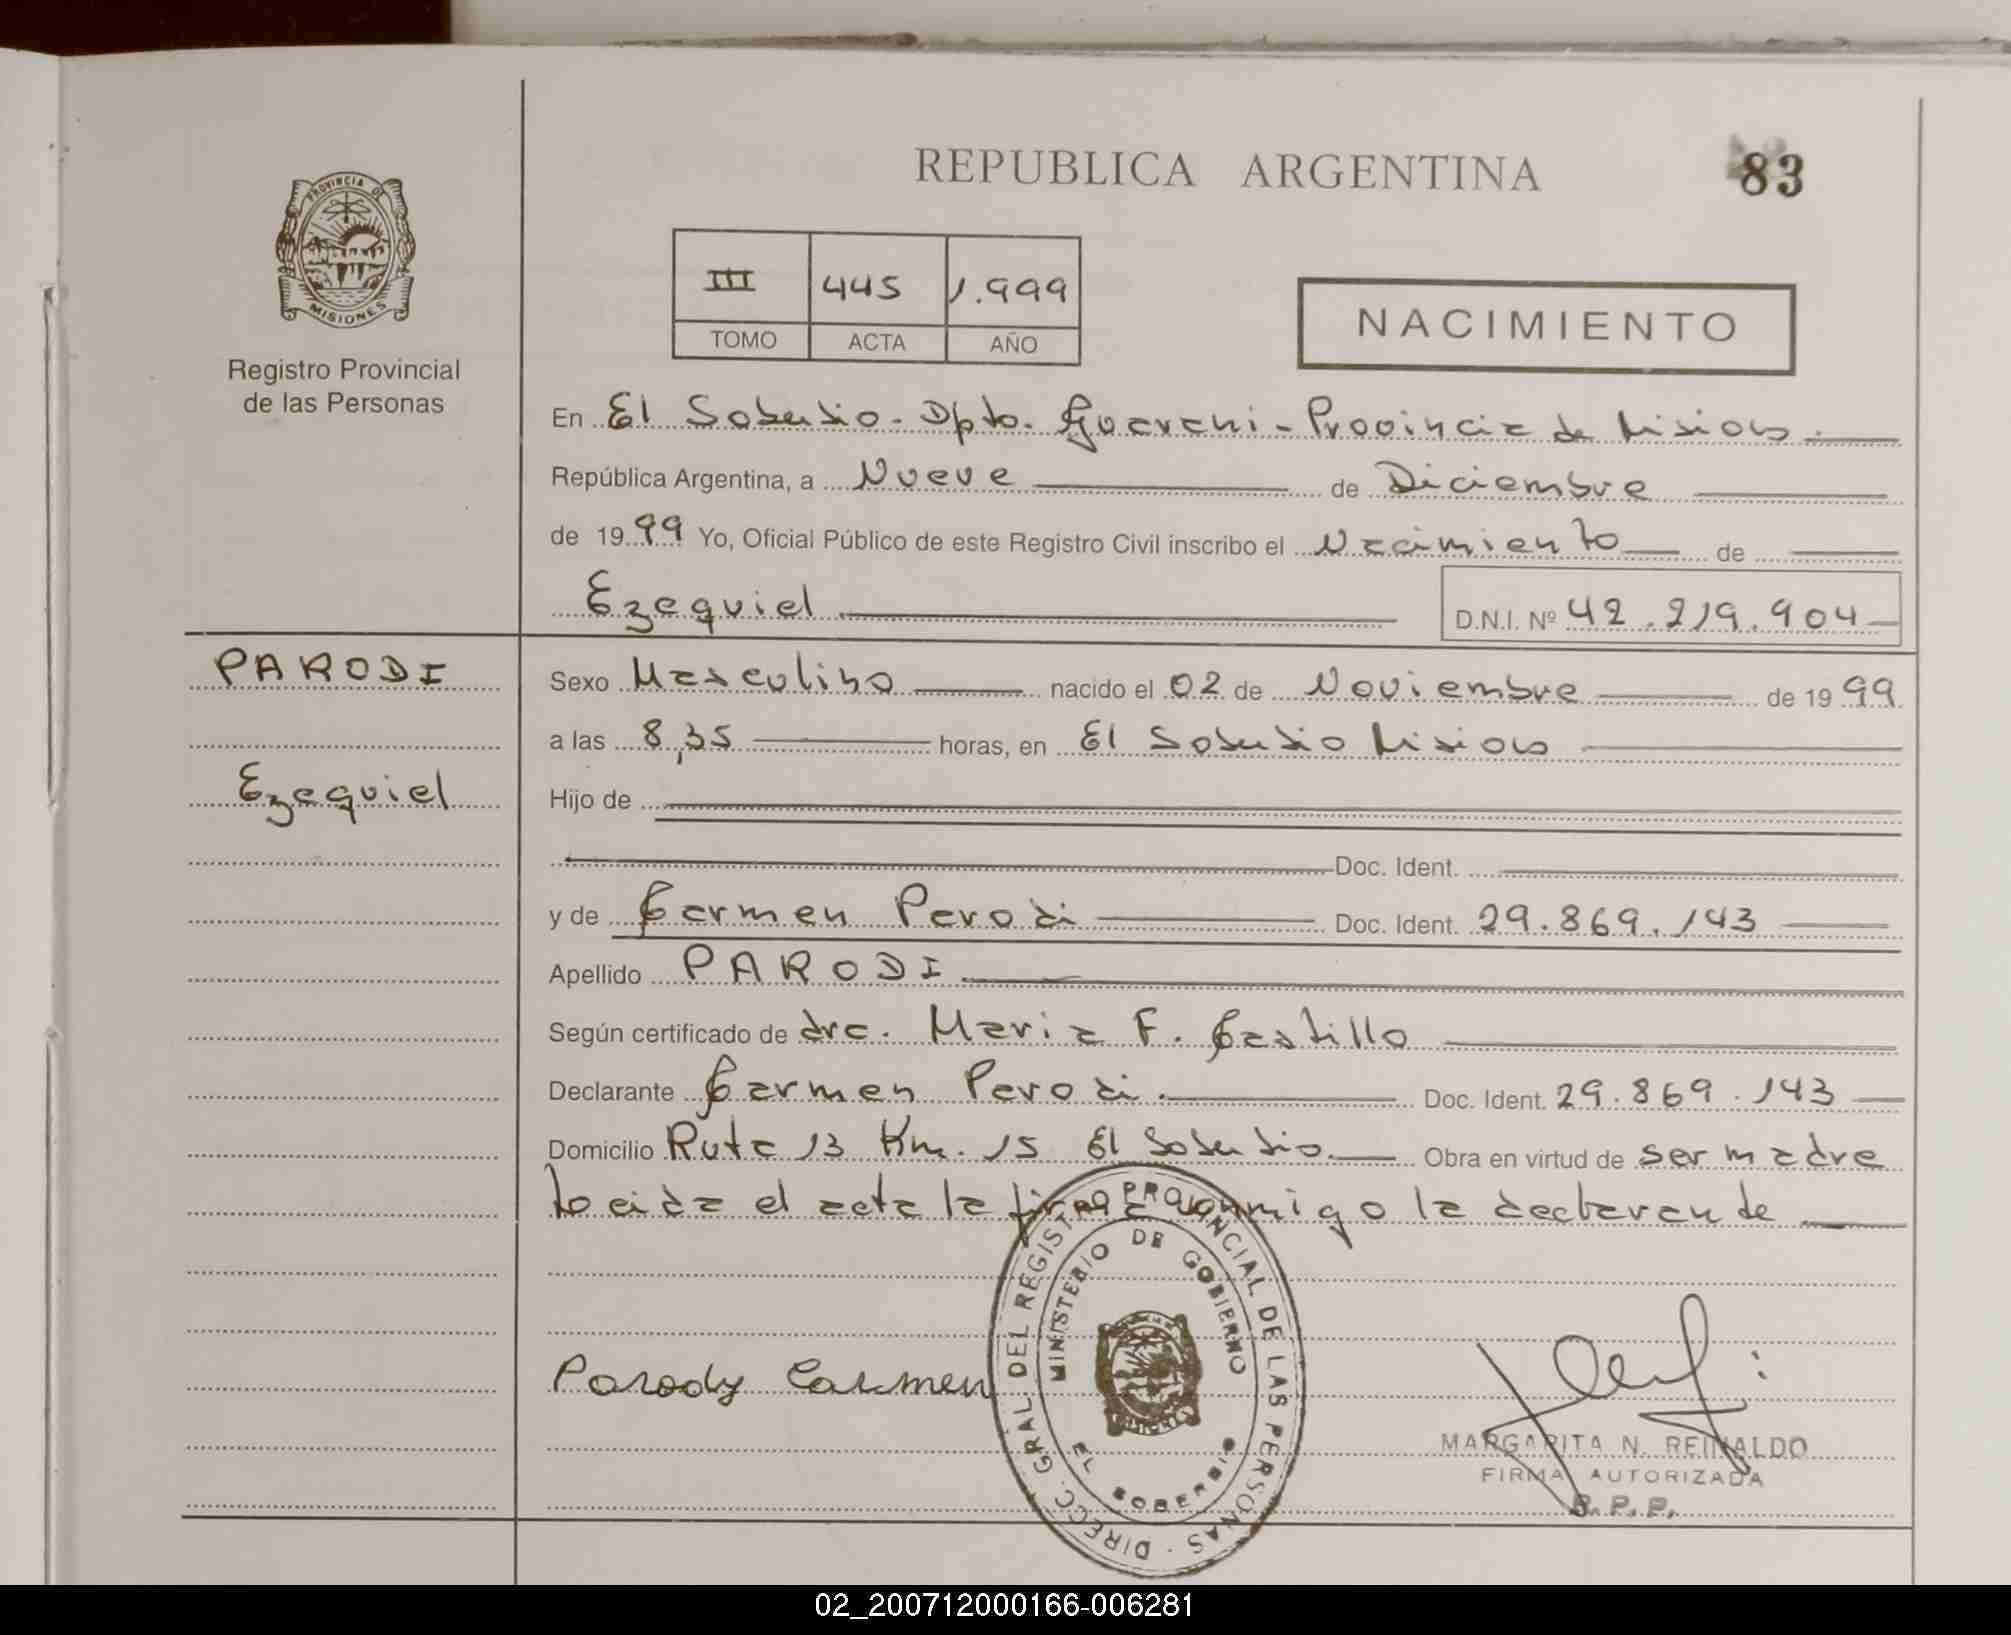 REPUBLICA ARGENTINA
83
PROVINCIA DE
MISIONES
Registro Provincial
de las Personas
III 445 1.999
TOMO ACTA AÑO
NACIMIENTO
En El Soberbio - Dpto. Guarani - Provincia de Misiones
República Argentina, a Nueve de Diciembre
de 1999 Yo, Oficial Público de este Registro Civil inscribo el Nacimiento de
Ezequiel D.N.I. Nº 42.219.904
PARODI
Ezequiel
Sexo Masculino nacido el 02 de Noviembre de 1999
a las 8,35 horas, en El Soberbio Misiones
Hijo de
Doc. Ident.
y de Carmen Parodi Doc. Ident. 29.869.143
Apellido PARODI
Según certificado de dra. Maria F. Castillo
Declarante Carmen Parodi. Doc. Ident. 29.869.143
Domicilio Ruta 13 Km. 15 El Soberbio. Obra en virtud de ser madre
Leida el acta la firma conmigo la declarante
Parody Carmen
DIRECC. GRAL. DEL REGISTRO PROVINCIAL DE LAS PERSONAS
MINISTERIO DE GOBIERNO
EL SOBERBIO
MARGARITA N. REINALDO
FIRMA AUTORIZADA
R.P.P.
02_200712000166-006281